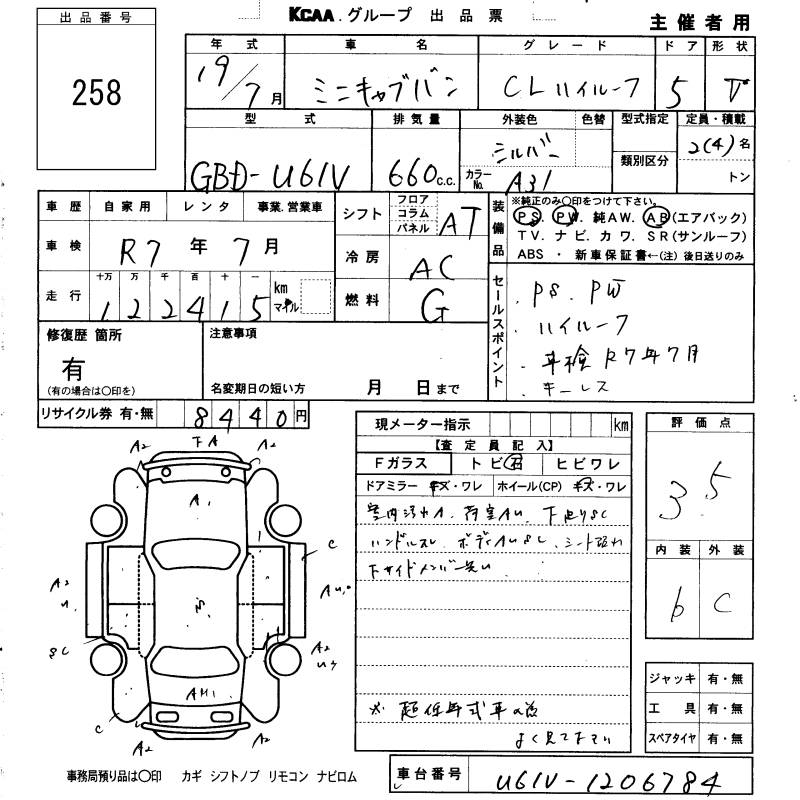 KCAA.グループ 出品票
主催者用
出品番号
258
年式 車名 グレード ドア 形状
19/7月 ミニキャブバン CLハイルーフ 5 V
型式 排気量 外装色 色替 型式指定 定員・積載
GBD-U61V 660c.c. シルバー カラーNo. A31 類別区分 2(4)名 トン
車歴 自家用 レンタ 事業.営業車
車検 R7年7月
走行 十万 万 千 百 十 一
122415 km マイル
シフト フロア コラム パネル AT
冷房 AC
燃料 G
装備品
※純正のみ〇印をつけて下さい。
PS. PW. 純AW. AB(エアバック)
TV. ナビ. カワ. SR(サンルーフ)
ABS ・ 新車保証書←(注) 後日送りのみ
セールスポイント
. PS. PW
. ハイルーフ
. 車検 R7年7月
. キーレス
修復歴 箇所
有
(有の場合は〇印を)
注意事項
名変期日の短い方 月 日まで
リサイクル券 有・無 8440円
現メーター指示 km
【査定員記入】
Fガラス トビ石 ヒビワレ
ドアミラー キズ・ワレ ホイール(CP) キズ・ワレ
室内汚れA. 荷室AU. 下廻りSC
ハンドルスレ. ボディAUSC. シート破れ
下サイドメンバー
※ 超低年式車の為
よく見て下さい
評価点
3.5
内装 外装
b C
ジャッキ 有・無
工具 有・無
スペアタイヤ 有・無
A2 FA A2
A1
C
A2
U
SC
A2
C
A2 A2
事務局預り品は〇印 カギ シフトノブ リモコン ナビロム
車台番号 U61V-1206784